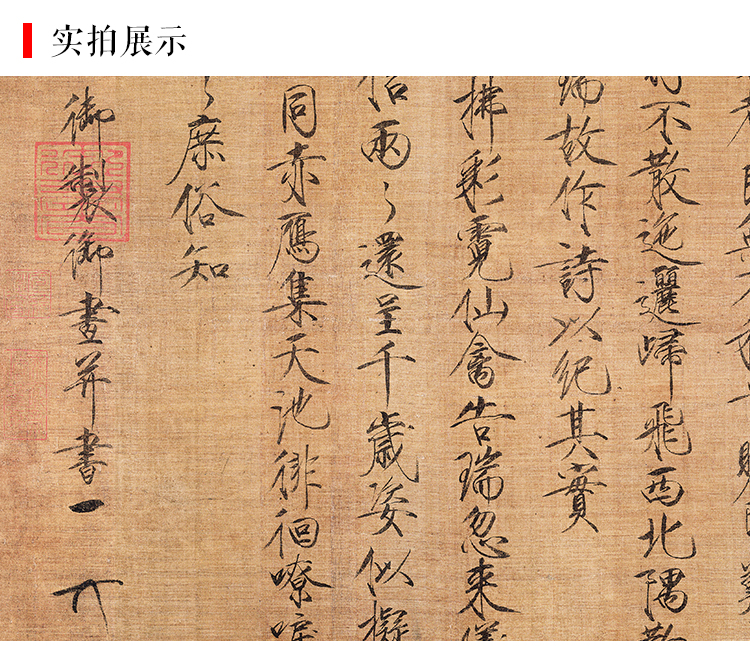 实拍展示
不散迤邐歸飛西北隅
故作詩以紀其實
拂彩霓仙禽告瑞忽來儀
兩〻還呈千歲姿似擬
同赤鴈集天池徘徊嘹唳
〻庶俗知
御製御畫并書